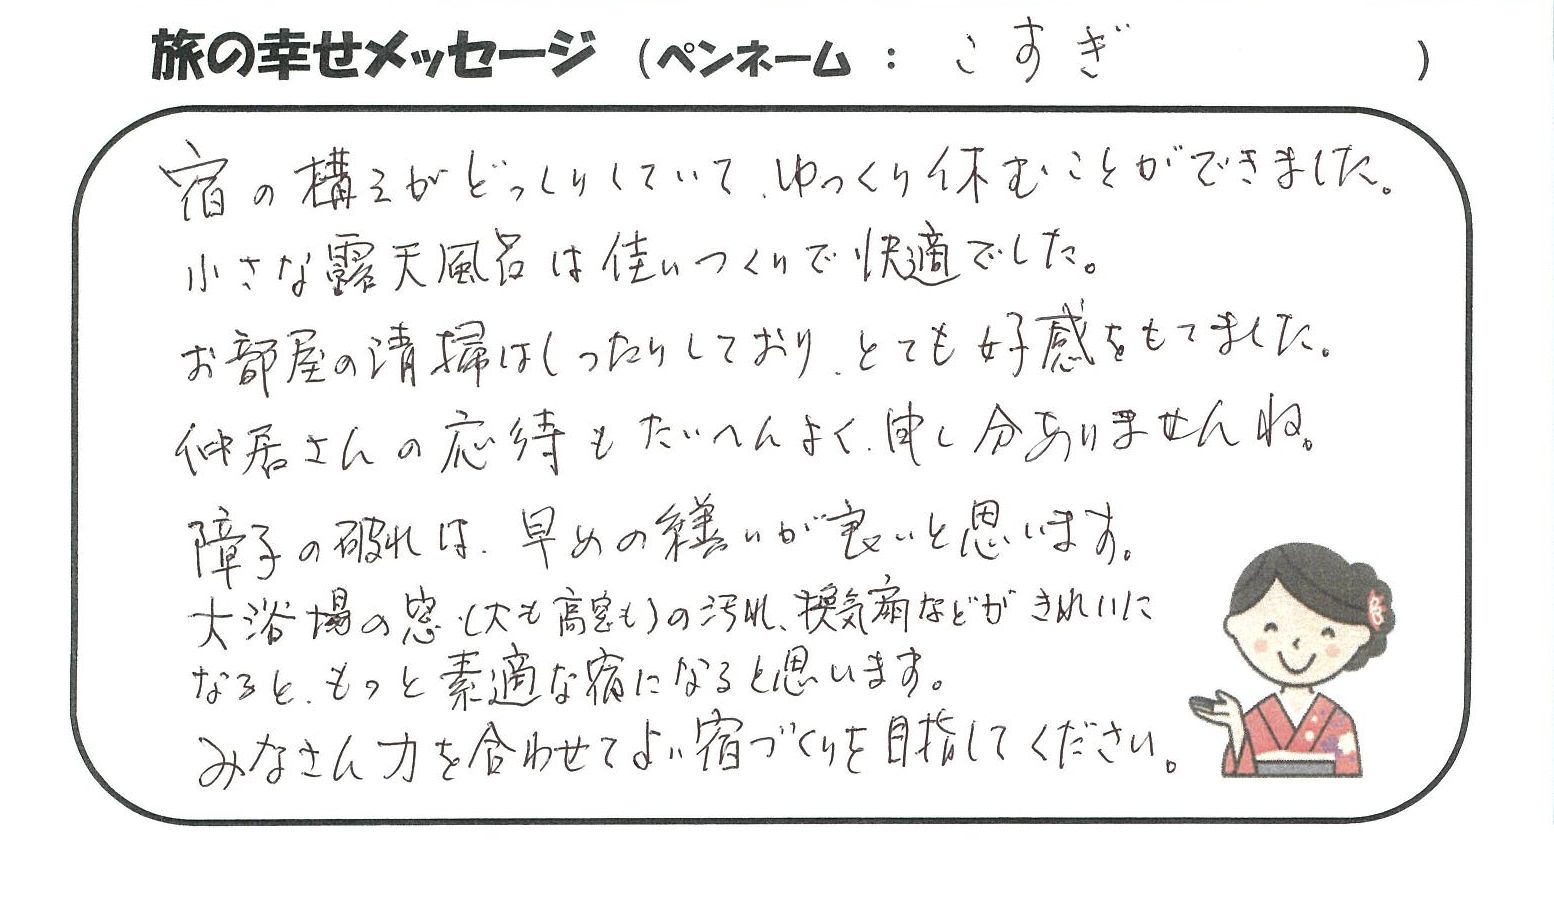 旅の幸せメッセージ (ペンネーム : こすぎ )
宿の構えがどっしりしていて、ゆっくり休むことができました。
小さな露天風呂は佳いつくりで快適でした。
お部屋の清掃はしったりしており、とても好感をもてました。
仲居さんの応待もたいへんよく、申し分ありませんね。
障子の破れは、早めの繕いが良いと思います。
大浴場の窓(大も高窓も)の汚れ、換気扇などがきれいに
なると、もっと素適な宿になると思います。
みなさん力を合わせてよい宿づくりを目指してください。